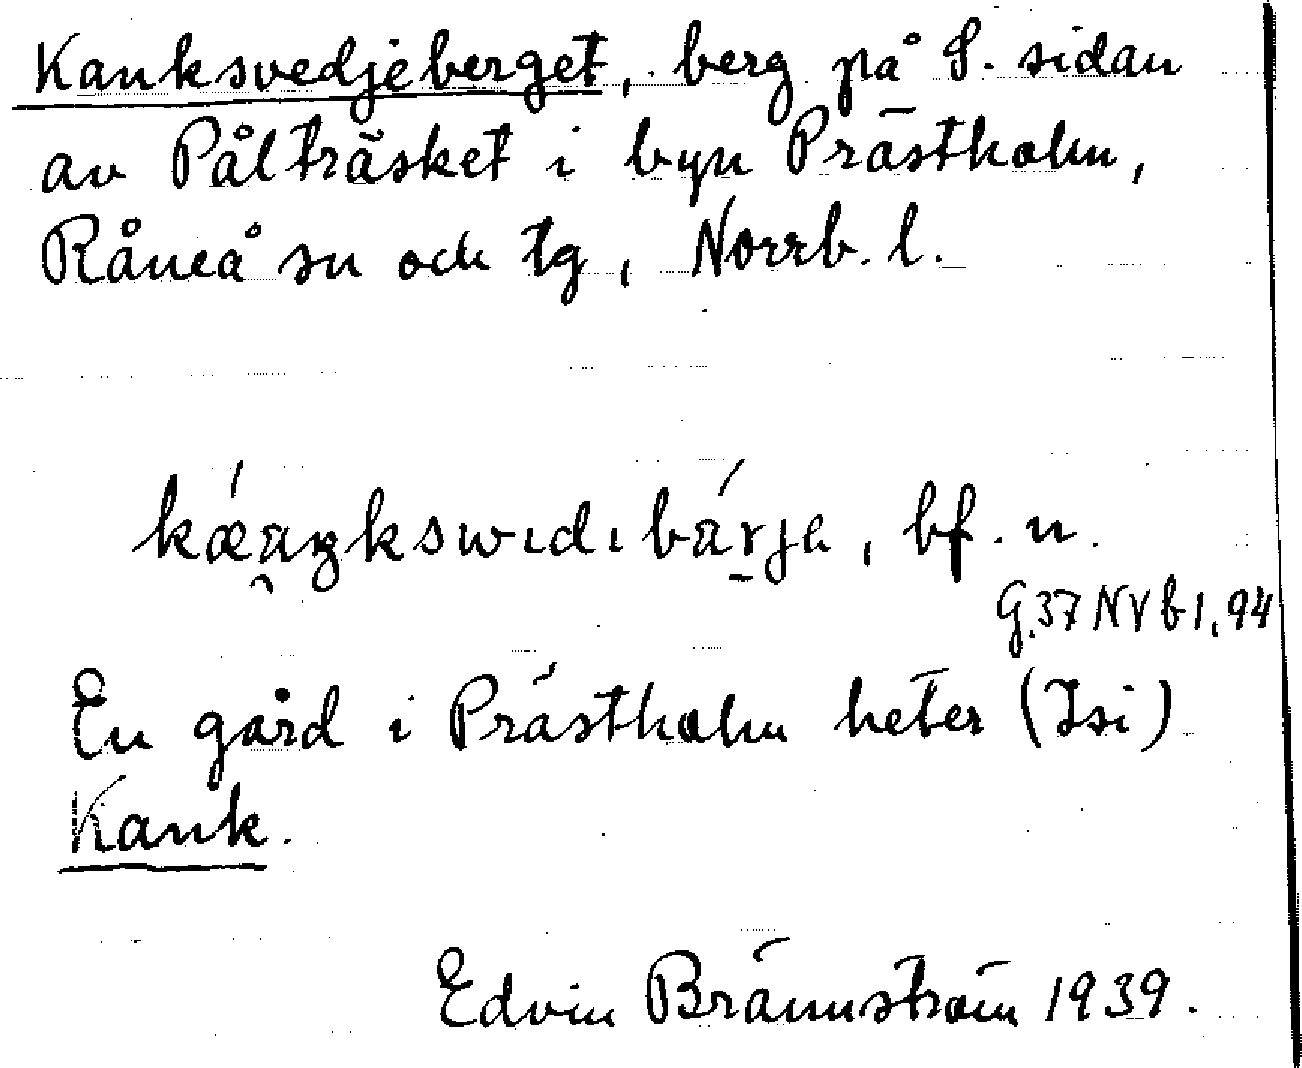 Kanksvedjeberget, berg på S. sidan
av Pålträsket i byn Prästholm,
Råneå sn och tg, Norrb. l.
kǽa̯ŋkswıdıbá̱rja, bf. n.
G.37 NVb1,94
En gård i Prästholm heter (Isi)
Kank.
Edvin Brännström 1939.